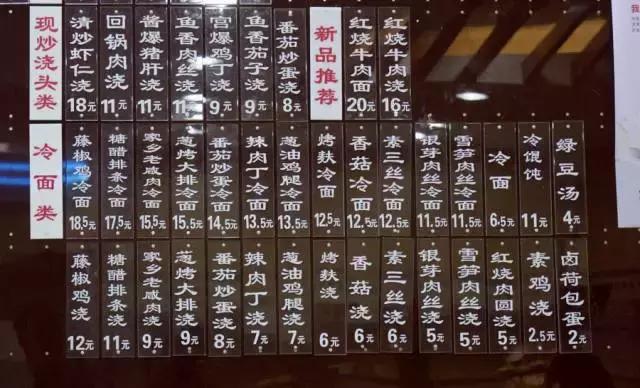 现炒浇头类
清炒虾仁浇 18元
回锅肉浇 11元
酱爆猪肝浇 11元
鱼香肉丝浇 11元
宫爆鸡丁浇 9元
鱼香茄子浇 9元
番茄炒蛋浇 8元
新品推荐
红烧牛肉面 20元
红烧牛肉浇 16元
冷面类
藤椒鸡冷面 18.5元
糖醋排条冷面 17.5元
家乡老咸肉冷面 15.5元
葱烤大排冷面 15.5元
番茄炒蛋冷面 14.5元
辣肉丁冷面 13.5元
葱油鸡腿冷面 13.5元
烤麸冷面 12.5元
香菇冷面 12.5元
素三丝冷面 12.5元
银芽肉丝冷面 11.5元
雪笋肉丝冷面 11.5元
冷面 6.5元
冷馄饨 11元
绿豆汤 4元
藤椒鸡浇 12元
糖醋排条浇 11元
家乡老咸肉浇 9元
葱烤大排浇 9元
番茄炒蛋浇 8元
辣肉丁浇 7元
葱油鸡腿浇 7元
烤麸浇 6元
香菇浇 6元
素三丝浇 6元
银芽肉丝浇 5元
雪笋肉丝浇 5元
红烧肉圆浇 5元
素鸡浇 2.5元
卤荷包蛋 2元
我